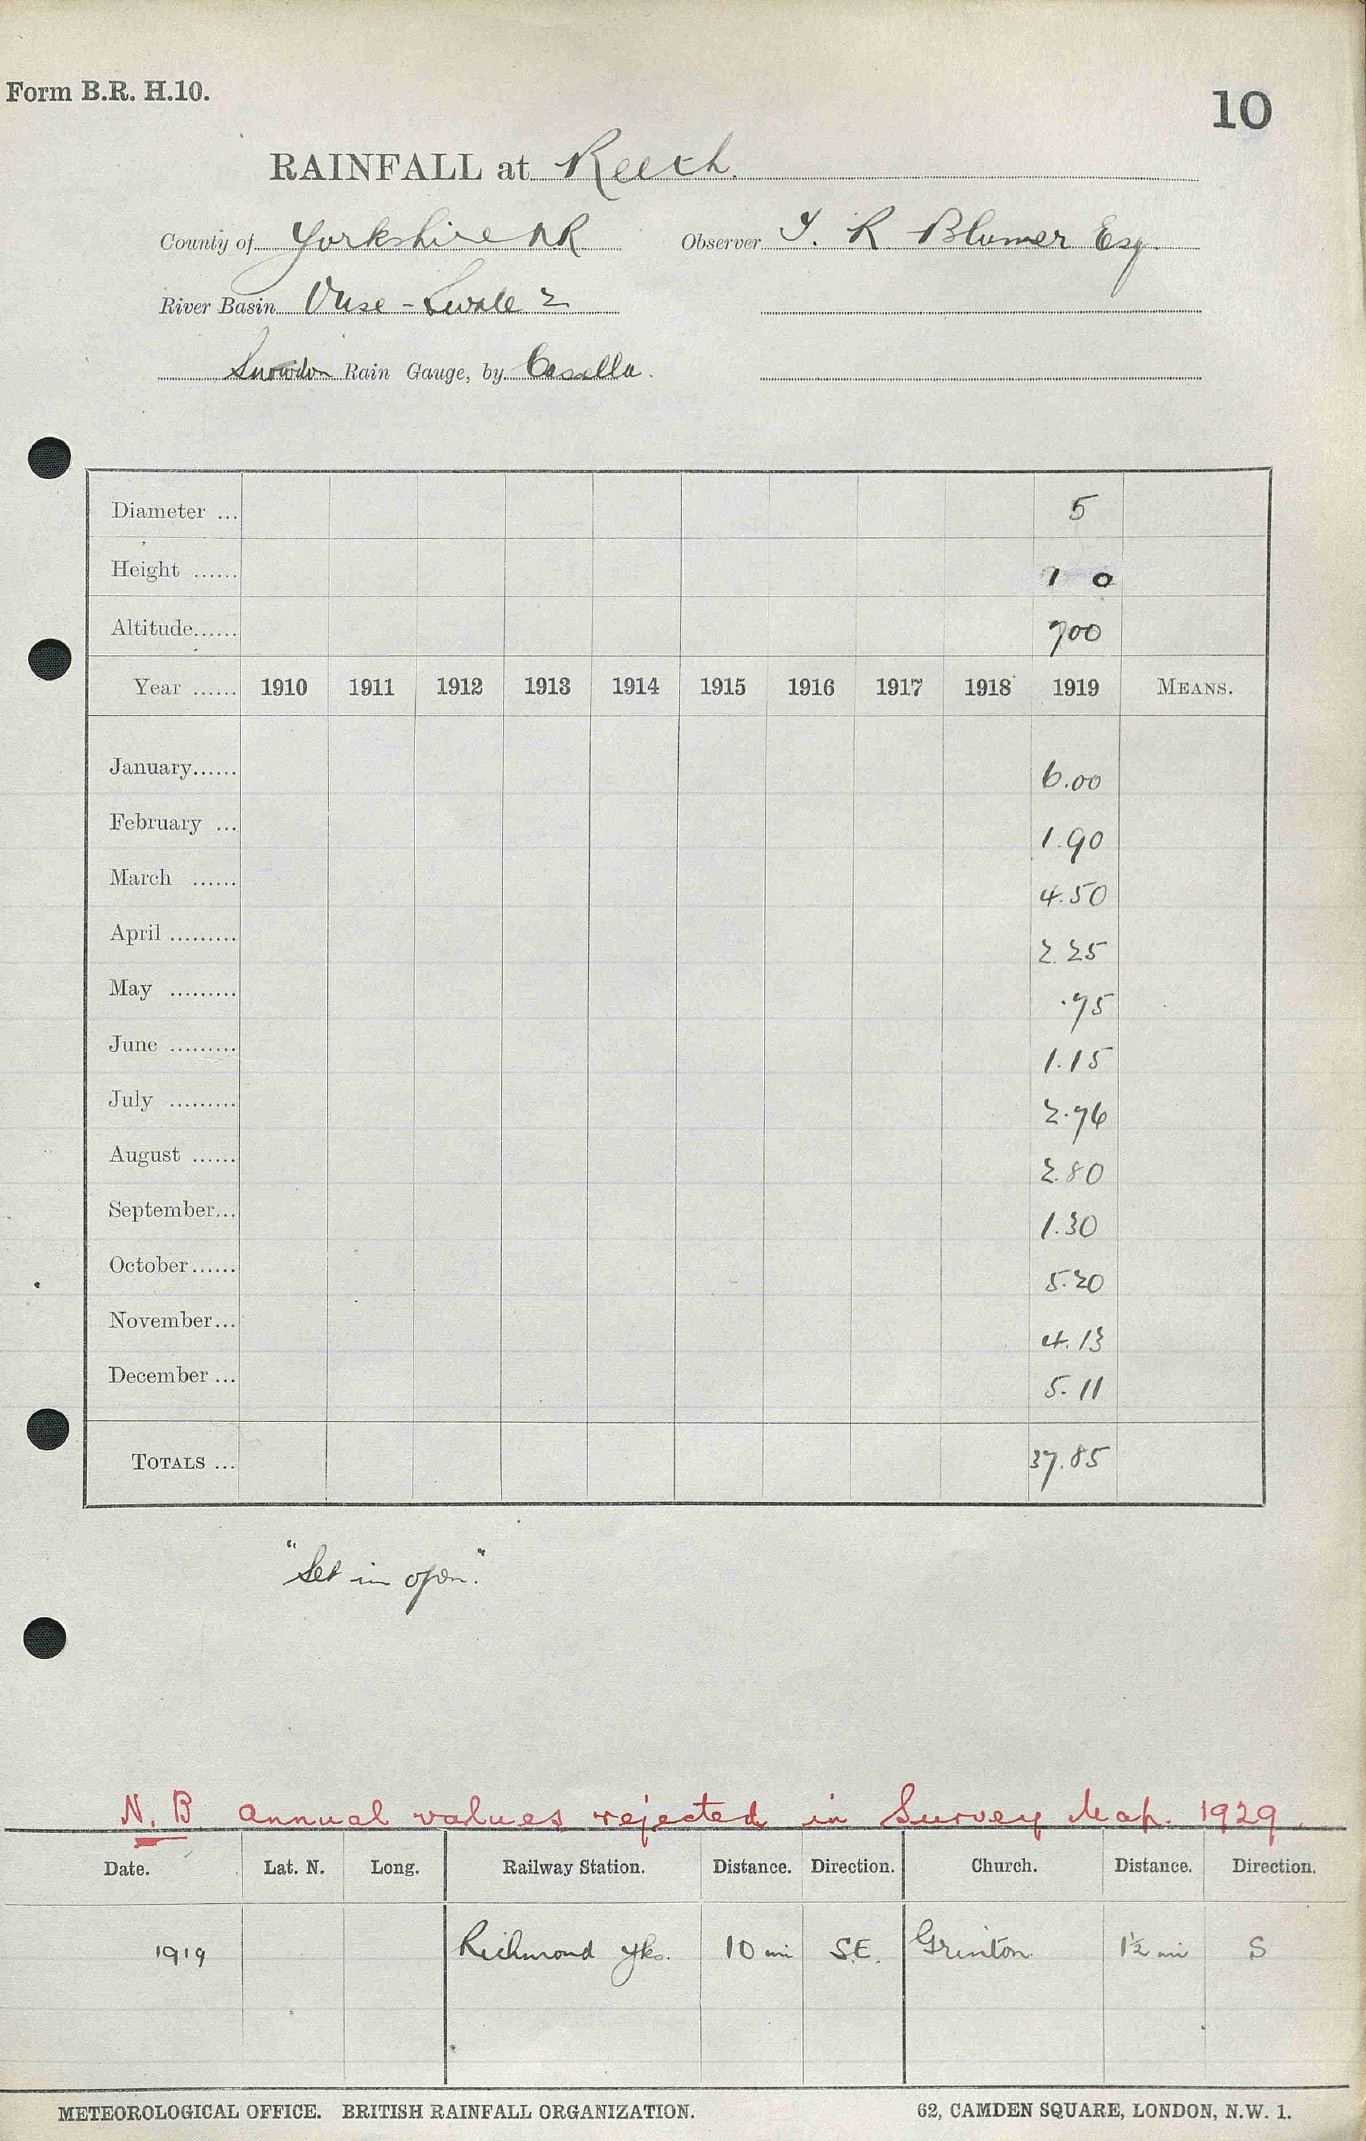 Form B.R. H.10.
10
RAINFALL at Reeth.
County of Yorkshire NR Observer T. R Blumer Esq.
River Basin Ouse - Swale 2
Snowdon Rain Gauge, by Casella.
Diameter ... 5
Height ...... 1 0
Altitude...... 700
Year ...... 1910 1911 1912 1913 1914 1915 1916 1917 1918 1919 MEANS.
January...... 6.00
February ... 1.90
March ...... 4.50
April ......... 2.25
May ......... .75
June ......... 1.15
July ......... 2.76
August ...... 2.80
September... 1.30
October...... 5.20
November... 4.13
December ... 5.11
TOTALS ... 37.85
"Set in open."
N.B. Annual values rejected in Survey Map. 1929.
Date. Lat. N. Long. Railway Station. Distance. Direction. Church. Distance. Direction.
1919 Richmond Yks. 10 mi S.E. Grinton 1½ mi S
METEOROLOGICAL OFFICE. BRITISH RAINFALL ORGANIZATION. 62, CAMDEN SQUARE, LONDON, N.W. 1.